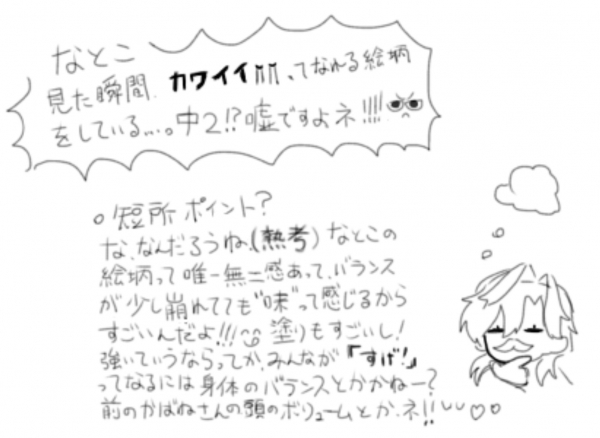 なとこ
見た瞬間、カワイイ!!!!ってなれる絵柄
をしている...。中2!?嘘ですよネ!!!!
○短所ポイント?
な、なんだろうね、(熱考)なとこの
絵柄って唯一無二感あって、バランス
が少し崩れてても"味"って感じるから
すごいんだよ!!!塗りもすごいし!
強いていうならってか、みんなが「すげ!」
ってなるには身体のバランスとかかねー?
前のかばねさんの頭のボリュームとか、ネ!!